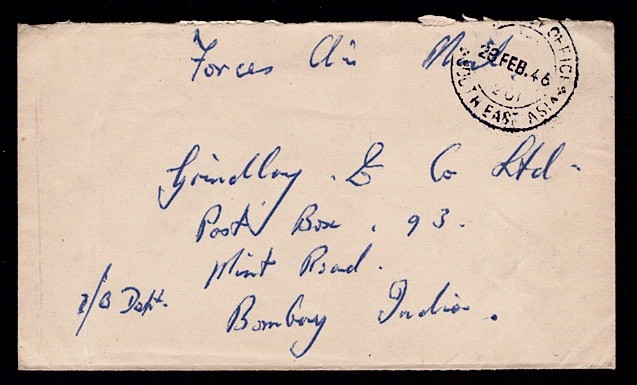 Forces Air Mail.
OFFICE
28 FEB. 46
201
SOUTH EAST ASIA
Grindlay & Co Ltd -
Post Box . 93.
Mint Road.
Dept.
Bombay India.